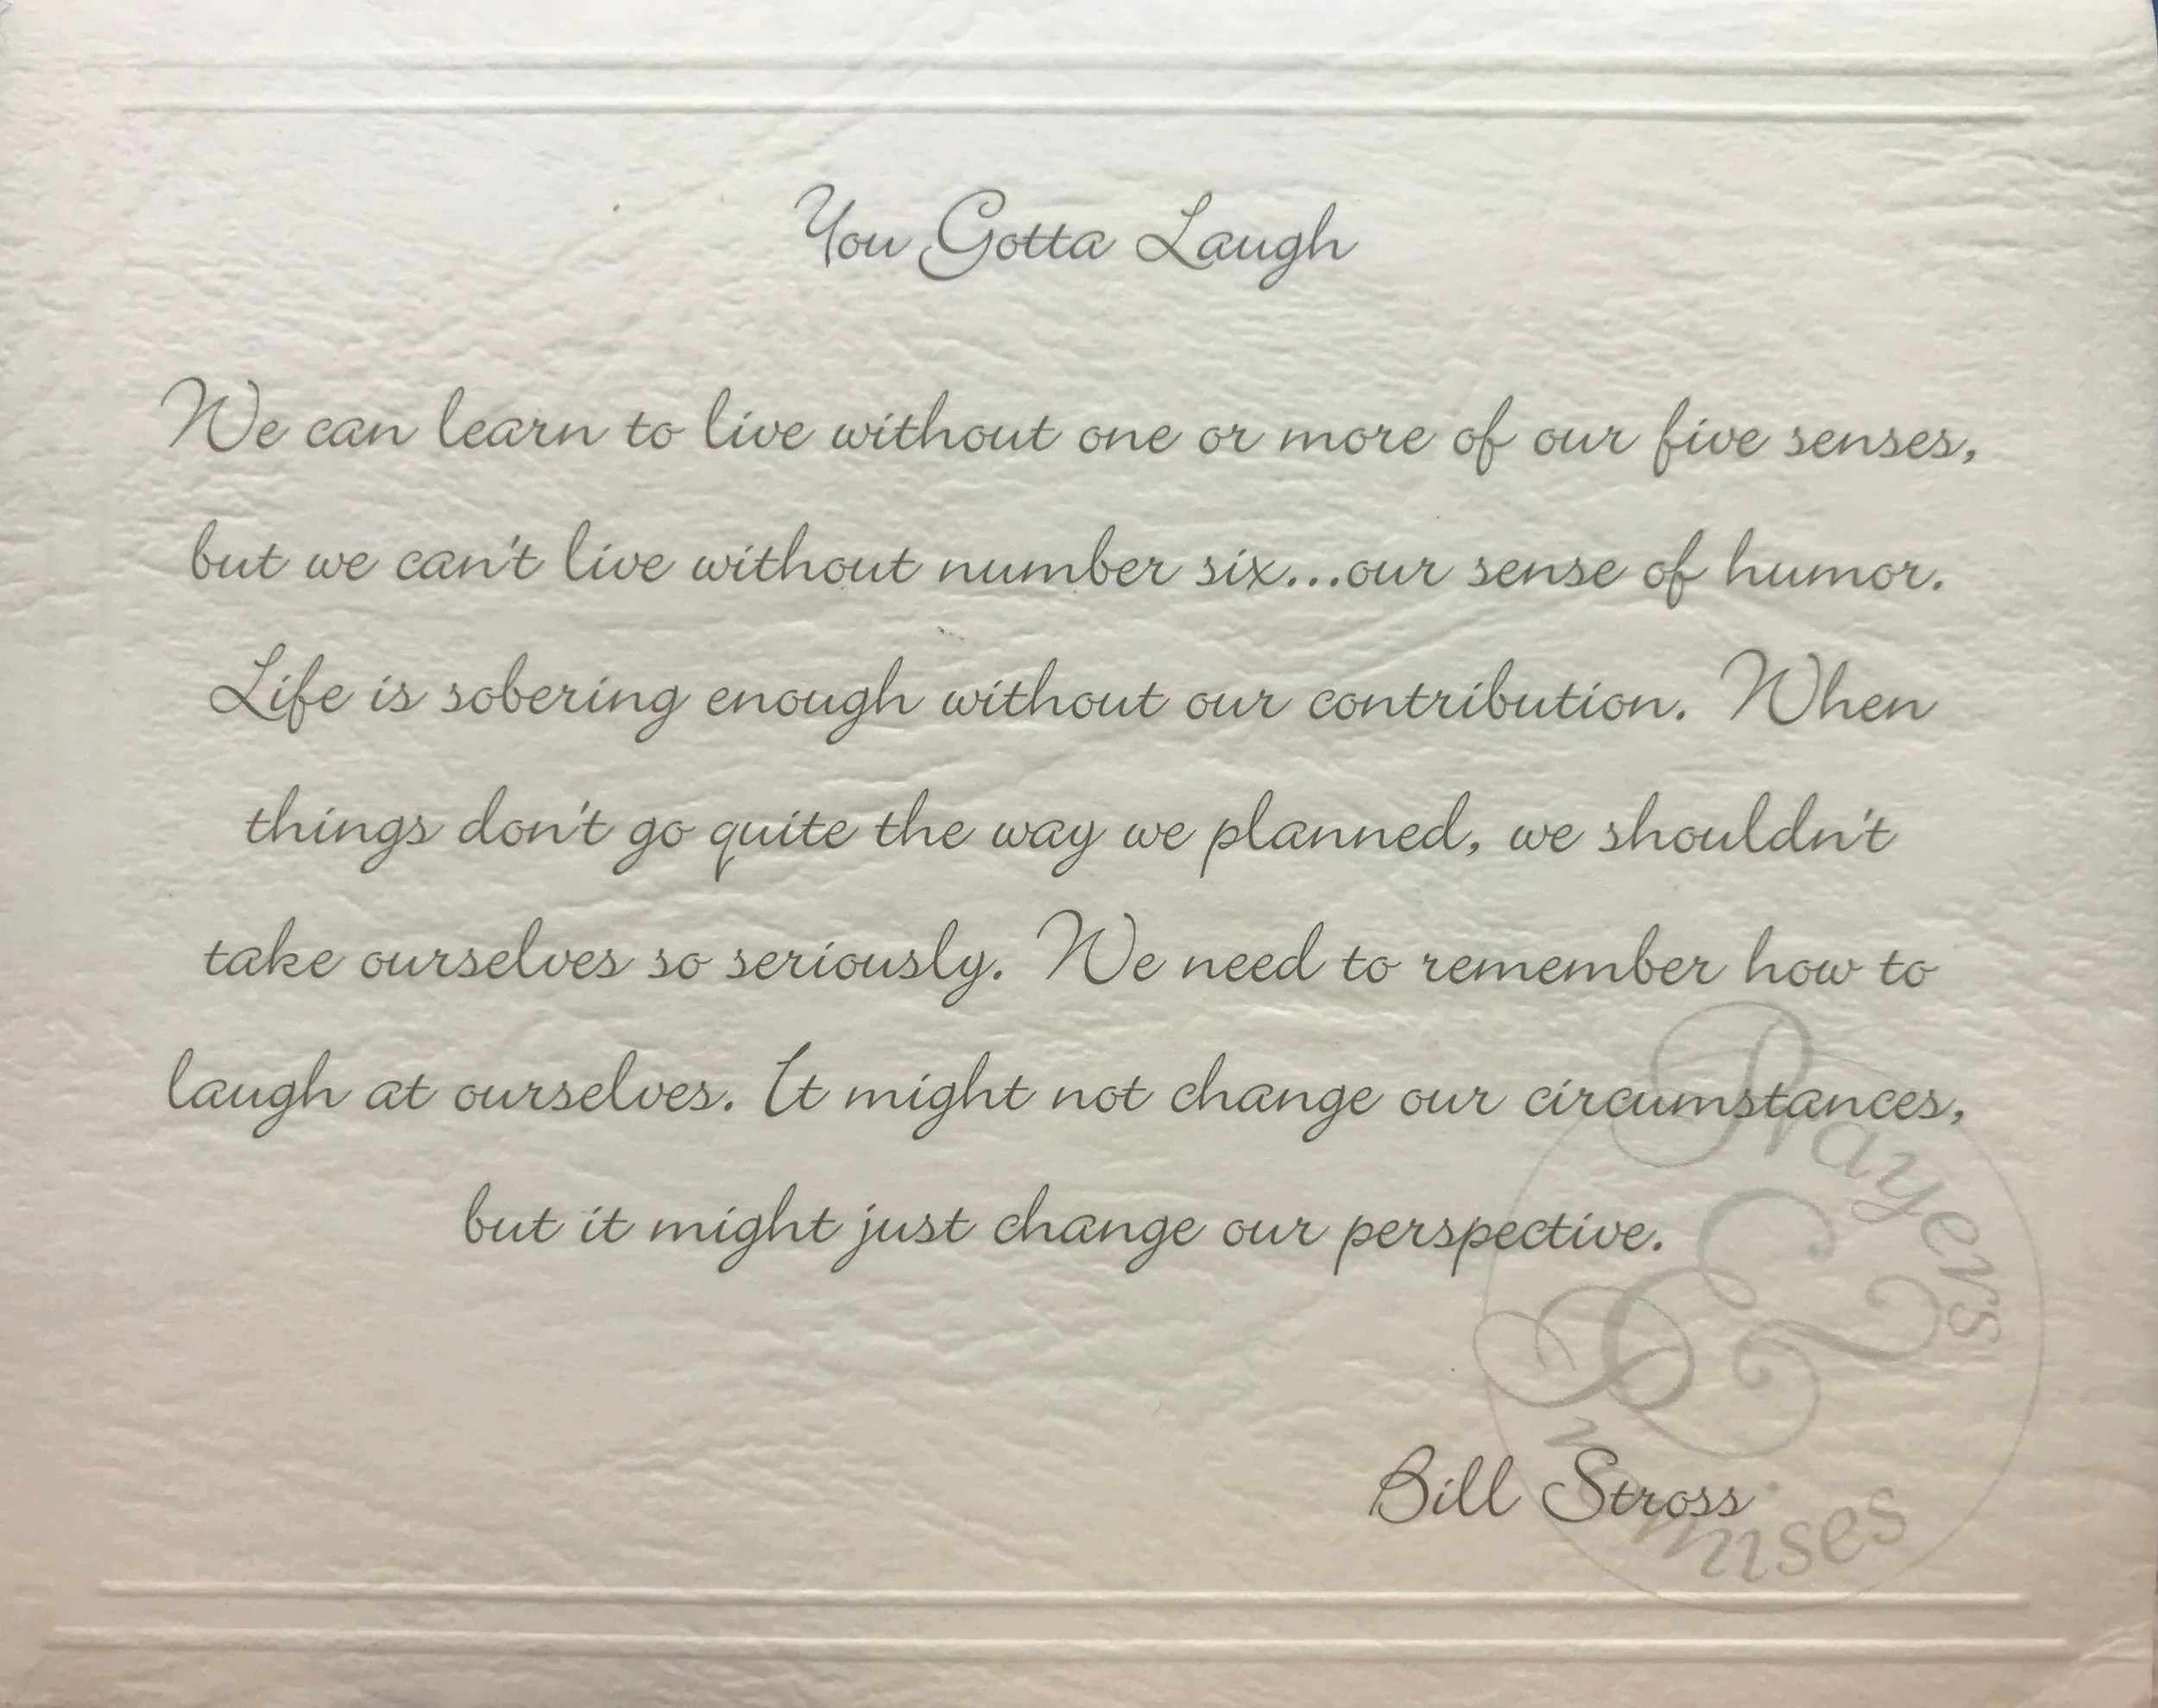 You Gotta Laugh
We can learn to live without one or more of our five senses,
but we can't live without number six...our sense of humor.
Life is sobering enough without our contribution. When
things don't go quite the way we planned, we shouldn't
take ourselves so seriously. We need to remember how to
laugh at ourselves. It might not change our circumstances,
but it might just change our perspective.
Prayers
&
Promises
Bill Stross